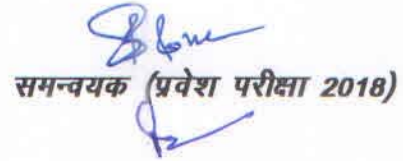 समन्वयक (प्रवेश परीक्षा 2018)